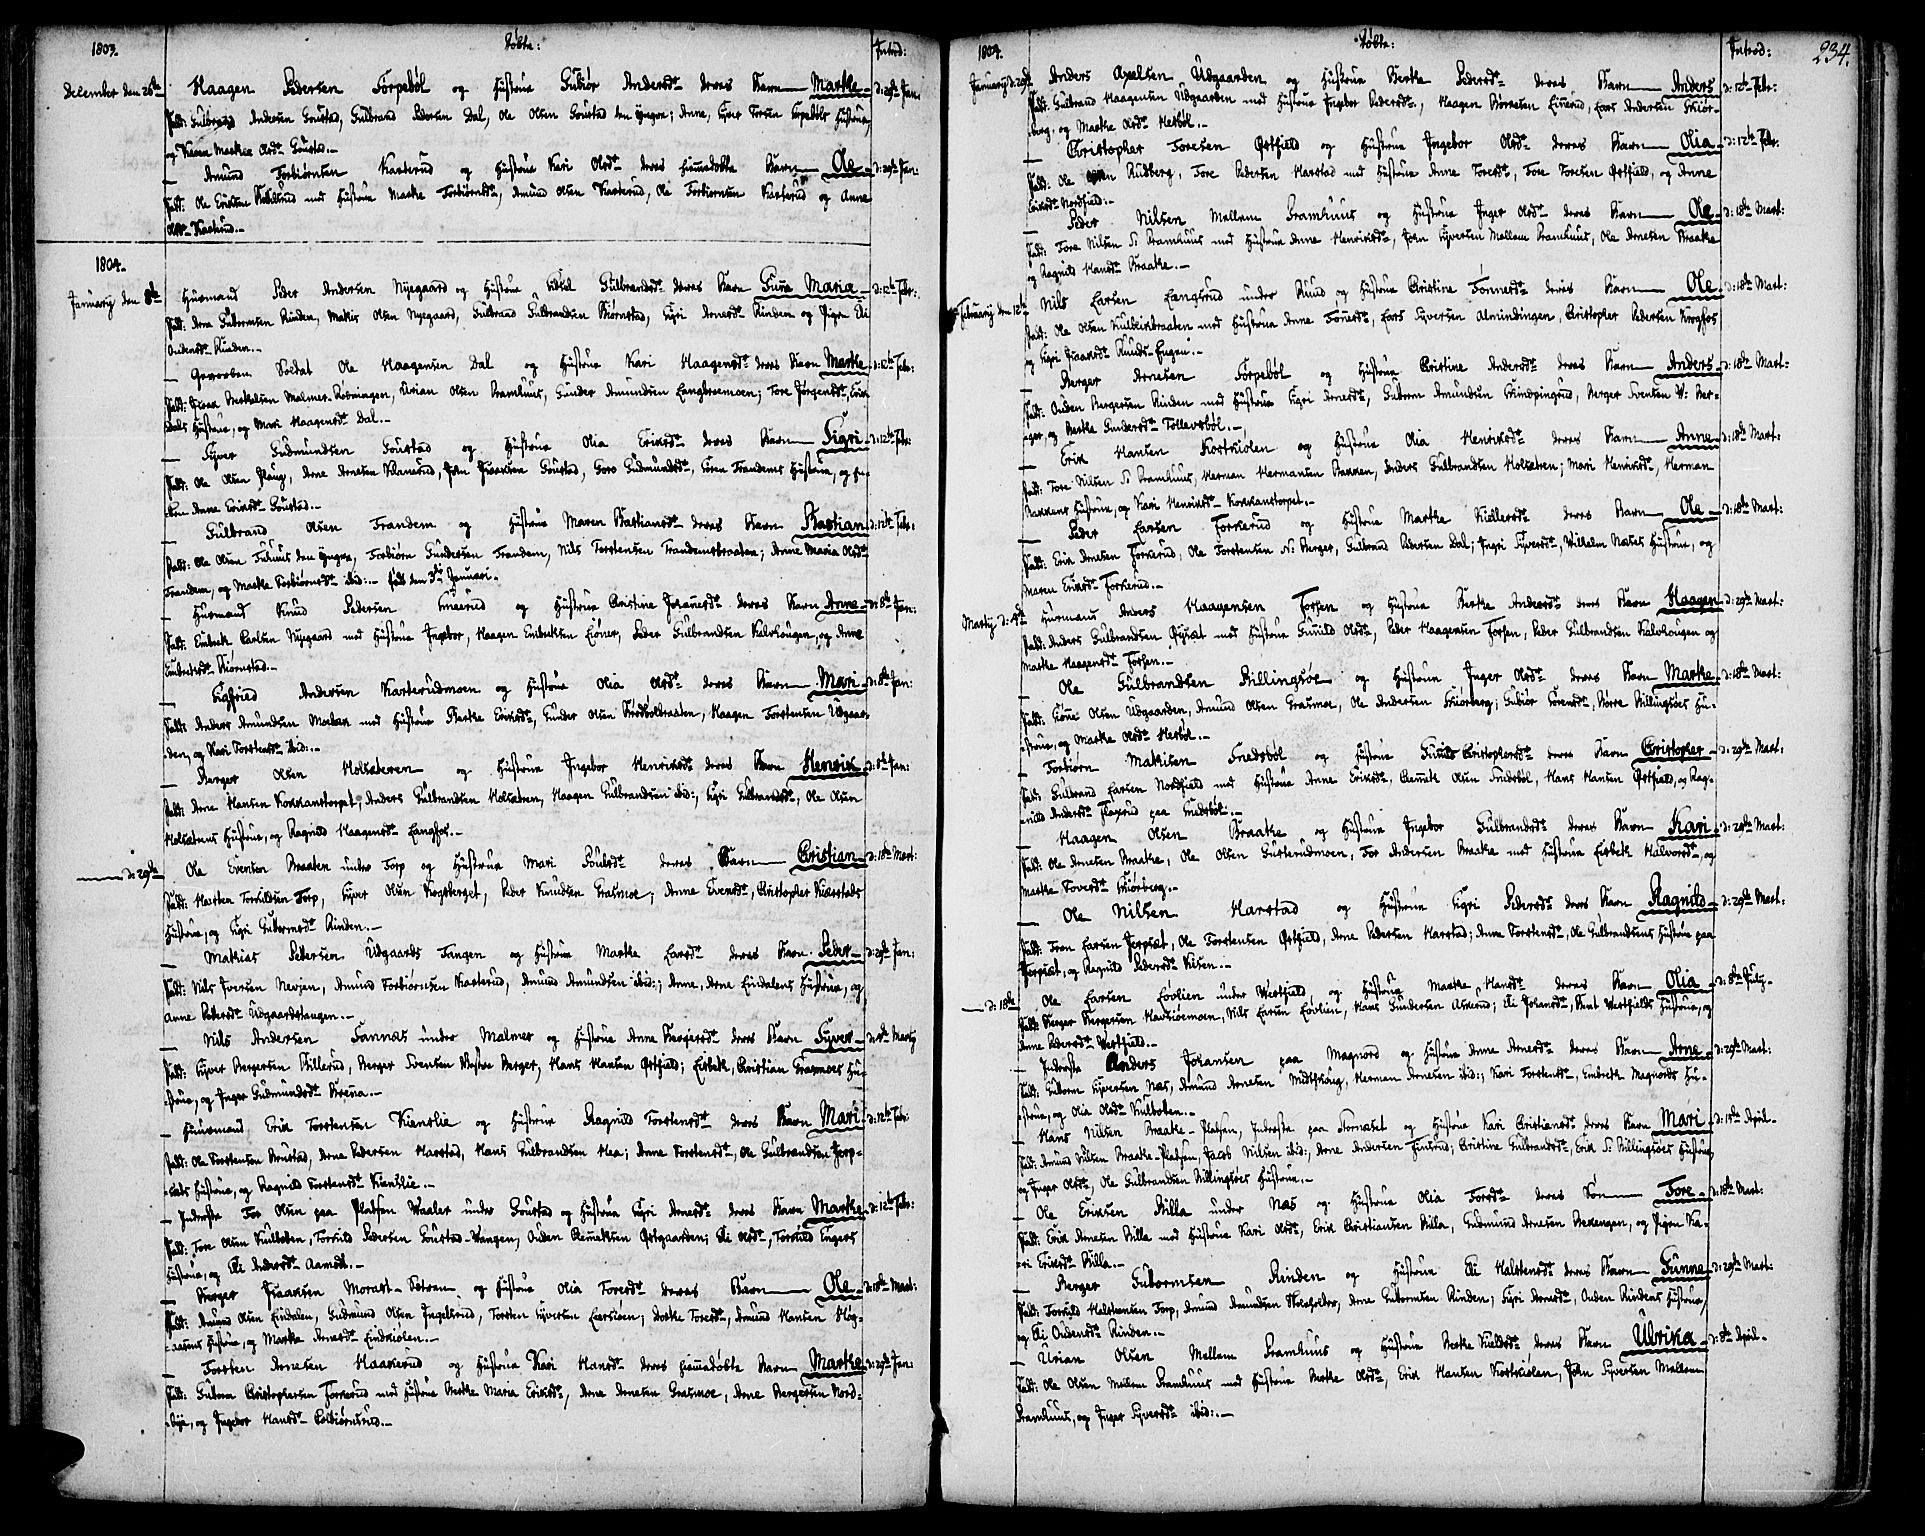 1803.
Døbte:
Introd:
December den 26de
Haagen Pedersen Torpebøl og Hustrue Gubiør Andersd: deres Barn Marthe d: 29de Jan:
Fadd: Gulbrand Andersen Goustad, Gulbrand Pedersen Dal, Ole Olsen Goustad den Yngre; Anne, Hustrue,
og Karen Mathea Olsd: Goustad.
Amund Torbiørnsen Kasterud og Hustrue Kari Olsd: deres hiemmedøbte Barn Ole d: 29de Jan:
Fadd: Ole Eriksen med Hustrue Marthe Torbiørnsd:, Amund Olsen Kasterud, Ole Torbiørnsen Kasterud og Anne
Olsd: Kasterud.
1804.
Januarij den 8de
Huusmand Peder Andersen Nyegaard og Hustrue Gulbrandsd: deres Barn Maria d: 12te Febr:
Fadd: Arne Guttormsen Rinden, Olsen Nyegaard, Gulbrand Gulbrandsen Biørnstad, Sigri Arnesd: Rinden og Pigen Eli
Oudensd: Rinden.
Gevorben Soldat Ole Haagensen Dal og Hustrue Kari Haagensd: deres Barn Marthe d: 12te Febr:
Fadd: Malmer, Urian Olsen Bramhuus, Gunder Amundsen Langbraemoen; Tore Jørgensd:,
Dals Hustrue, og Mari Haagensd: Dal.
Syver Gudmundsen Goustad og Hustrue Olia Eriksd: deres Barn Sigri d: 12te Febr:
Fadd: Ole Olsen Skoug, Arne Arnesen, John Isaaksen Goustad, Goro Gudmundsd:, Søren Trandems Hustrue, og
Anne Eriksd: Goustad.
Gulbrand Olsen Trandem og Hustrue Maren Bastiansd: deres Barn Bastian d: 12te Febr:
Fadd: Ole Olsen den Yngre, Torbiørn Gundersen Trandem, Nils Torstensen Trandemsbraaten; Anne Maria Olsd:
Trandem, og Marthe Torbiørnsd: ibid: født den 3de Januari.
Huusmand Knud Pedersen og Hustrue Christine Johansd: deres Barn Anne d: 8de Jan:
Fadd: Embrik Carlsen Nyegaard med Hustrue Ingebor, Haagen Embriksen, Peder Gulbrandsen Kalvhougen, og Anne
Embriksd: Biørnstad.
Sigfrid Andersen Kasterudmoen og Hustrue Olia Olsd: deres Barn Mari d: 8de Jan:
Fadd: Anders Amundsen med Hustrue Marthe Eriksd:, Gunder Olsen, Haagen Torstensen Udgaar-
den, og Kari Torstensd: ibid:
Berger Olsen Holsæteren og Hustrue Ingebor Henriksd: deres Barn Henrik d: 8de Jan:
Fadd: Arne Hansen Kokkanstorpet, Anders Gulbrandsen Holsætren, Haagen Gulbrandsen ibid:, Sigri Gulbrandsd:, Ole Olsen
Holsætrens Hustrue, og Ragnild Haagensd: Langfos.
d: 29de
Ole Evensen Braaten under Torp og Hustrue Mari Poulsd: deres Barn Christian d: 18de Mart:
Fadd: Halsten Torkildsen Torp, Syver Olsen Kogsberget, Peder Knudsen Grasmoe; Anne Evensd:, Christopher Kierstads
Hustrue, og Sigri Guttormsd: Rinden.
Mathias Pettersen Udgaards Tangen og Hustrue Marthe Larsd: deres Barn Peder d: 29de Jan:
Fadd: Nils Iversen Nevjen, Amund Torbiørnsen Kasterud, Amund Amundsen ibid:; Anne, Arne Eindalens Hustrue, og
Anne Pedersd: Udgaardstangen.
Nils Andersen Sannæs under Malmer og Hustrue Anne Bergersd: deres Barn Syver d: 4de Martij
Fadd: Syver Bergersen Billerud, Berger Svensen Berger, Hans Hansen Østfield; Lisbeth, Christian Grasmoes Hu-
strue, og Inger Gudmundsd:
Huusmand Erik Torstensen Kienslie og Hustrue Ragnild Torstensd: deres Barn Mari d: 12te Febr:
Fadd: Ole Torstensen Brustad, Arne Pedersen Harstad, Hans Gulbrandsen Hea; Anne Torstensd:, Ole Gulbrandsen Jerp-
sæts Hustrue, og Ragnild Torstensd: Kienslie.
Inderste Tor Olsen paa Pladsen Vaaler under Goustad og Hustrue Sigri Arnesd: deres Barn Marthe d: 12te Febr:
Fadd: Tore Olsen Kulboben, Torkild Pedersen Goustad-Vangen, Ouden Clemetsen Østgaarden; Eli Olsd:, Torkild Engers
Hustrue, og Eli Andersd: Aamodt.
Berger Isaaksen Morast-Sætren og Hustrue Olia Toresd: deres Barn Ole d: 18de Mart:
Fadd: Amund Olsen Eindalen, Gudmund Olsen Ingelsrud, Torsten Syversen Leersiøen; Dorthe Toresd:, Amund Hansen Hog-
aasens Hustrue, og Marthe Arnesd: Lindkiølen.
Torsten Arnesen Haakerud og Hustrue Kari Hansd: deres hiemmedøbte Barn Marthe d: 29de Jan:
Fadd: Guttorm Christophersen Torkerud med Hustrue Berthe Maria Eriksd:, Arne Arnesen Grasmoe, Arne Bergersen Nord-
bye, og Ingebor Hansd: Kolbiørnsrud.
1804.
Døbte:
Introd:
234.
Januarij d: 29de
Anders Axelsen Udgaarden og Hustrue Berthe Pedersd: deres Barn Anders d: 12te Febr:
Fadd: Gulbrand Haagensen Udgaarden med Hustrue Ingebor Pedersd:, Haagen Borresen, Lars Andersen Skiør-
berg, og Marthe Olsd: Hesbøl.
Christopher Toresen Østfield og Hustrue Ingebor Olsd: deres Barn Olia d: 12te Febr:
Fadd: Ole Rudberg, Tore Pedersen Harstad med Hustrue Anne Toresd:, Tore Toresen Østfield, og Anne
Eriksd: Nordfield.
Peder Nilsen Mellem Bramhuus og Hustrue Inger Olsd: deres Barn Ole d: 18de Mart:
Fadd: Tore Nilsen S: Bramhuus med Hustrue Anne Henriksd:, John Syversen Mellem Bramhuus, Ole Arnesen Braake
og Ragnild Hansd: Braake.
Februarij den 12te
Nils Larsen Langsrud under Ruud og Hustrue Christine Tønnesd: deres Barn Ole d: 18de Mart:
Fadd: Ole Olsen Kulblikbraaten med Hustrue Anne Tønesd:, Lars Syversen Almindingen, Christopher Pedersen Krogfos
og Sigri Isaaksd: Ruuds-Engen.
Berger Arnesen Torpebøl og Hustrue Christine Andersd: deres Barn Anders d: 18de Mart:
Fadd: Ouden Bergersen Rinden med Hustrue Sigri Arnesd:, Guttorm Amundsen Grindpingrud, Berger Svensen V: Ber-
ger, og Berthe Gundersd: Tollevsbøl.
Erik Hansen Kortkiølen og Hustrue Olia Henriksd: deres Barn Anne d: 18de Mart:
Fadd: Tore Nilsen S: Bramhuus, Herman Hermansen Bakken, Anders Gulbrandsen Holsætren; Mari Henriksd:, Herman
Bakkens Hustrue, og Kari Henriksd: Kokkanstorpet.
Peder Larsen Torkerud og Hustrue Marthe Kiellersd: deres Barn Ole d: 18de Mart:
Fadd: Erik Arnesen Torkerud, Ole Torstensen N: Berger, Gulbrand Pedersen Dal; Ingri Syversd:, Wilhelm Næsets Hustrue, og
Maren Eriksd: Torkerud.
Martij d: 4de
Huusmand Anders Haagensen Torsen og Hustrue Berthe Andersd: deres Barn Haagen d: 29de Mart:
Fadd: Anders Gulbrandsen Øysæt med Hustrue Gunild Olsd:, Peder Haagensen Torsen, Peder Gulbrandsen Kalvhougen og
Marthe Haagensd: Torsen.
Ole Gulbrandsen Billingsøe og Hustrue Inger Olsd: deres Barn Marthe d: 18de Mart:
Fadd: Tøne Olsen Udgaarden, Amund Olsen Grasmoe, Ole Andersen Skiørberg; Gubiør Sørensd:, Borre Billingsøes Hu-
strue, og Marthe Olsd: Hesbøl.
Torbiørn Mathisen Snedsbøl og Hustrue Gunild Christophersd: deres Barn Christopher d: 29de Mart:
Fadd: Gulbrand Larsen Nordfield med Hustrue Anne Eriksd:, Clemet Olsen Snedsbøl, Hans Hansen Østfield, og Rag-
nild Andersd: paa Snedsbøl.
Haagen Olsen Braake og Hustrue Ingebor Gulbrandsd: deres Barn Kari d: 29de Mart:
Fadd: Ole Arnesen Braake, Ole Olsen Gutterudmoen, Tor Andersen Braake med Hustrue Lisbeth Halvorsd:, og
Marthe Toversd: Skiørberg.
Ole Nilsen Harstad og Hustrue Sigri Pedersd: deres Barn Ragnild d: 29de Mart:
Fadd: Tron Larsen Jerpsæt, Ole Torstensen Østfield, Arne Pedersen Harstad; Anne Torstensd:, Ole Gulbrandsens Hustrue paa
Jerpsæt, og Ragnild Pedersd: Kisen.
d: 18de
Ole Larsen Løvlien under Westfield og Hustrue Marthe Hansd: deres Barn Olia d: 8de July
Fadd: Berger Bergersen, Nils Larsen Løvlien, Hans Gundersen Aaserud; Eli Johansd:, Knut Westfields Hustrue, og
Anne Pedersd: Westfield.
Inderste Anders Johansen paa Magnord og Hustrue Anne Arnesd: deres Barn Arne d: 29de Mart:
Fadd: Guttorm Syversen Næs, Amund Arnesen Midtskoug, Herman Arnesen ibid:; Kari Torstensd:, Embreth Magnords Hu-
strue, og Olia Olsd: Kulboben.
Hans Nilsen Braake-Pladsen, Inderste paa Tornæset og Hustrue Kari Christiansd: deres Barn Mari d: 1ste April
Fadd: Amund Nilsen Braake-Pladsen, Jacob Nilsen ibid:, Arne Andersen Finsrud; Christine Gulbrandsd:, Erik S: Billingsøes Hustrue,
og Inger Olsd:, Ole Gulbrandsen Billingsøes Hustrue.
Ole Eriksen Billa under Næs og Hustrue Olia Toresd: deres Søn Tore d: 18de Mart:
Fadd: Erik Arnesen Billa med Hustrue Kari Olsd:, Erik Christiansen Billa, Gudmund Arnesen Brekengen, og Pigen Ka-
ri Eriksd: Billa.
Berger Guttormsen Rinden og Hustrue Eli Halstensd: deres Barn Gunne d: 29de Mart:
Fadd: Torkild Halstensen Torp, Amund Amundsen, Arne Guttormsen Rinden; Sigri Arnesd:, Ouden Rindens Hustrue,
og Eli Oudensd: Rinden.
Urian Olsen Mellem Bramhuus og Hustrue Berthe Kieldsd: deres Barn Ulrika d: 8de April
Fadd: Ole Olsen Mellem Bramhuus med Hustrue Berthe Olsd:, Erik Hansen Kortkiølen, John Syversen Mellem
Bramhuus, og Inger Syversd: ibid:.